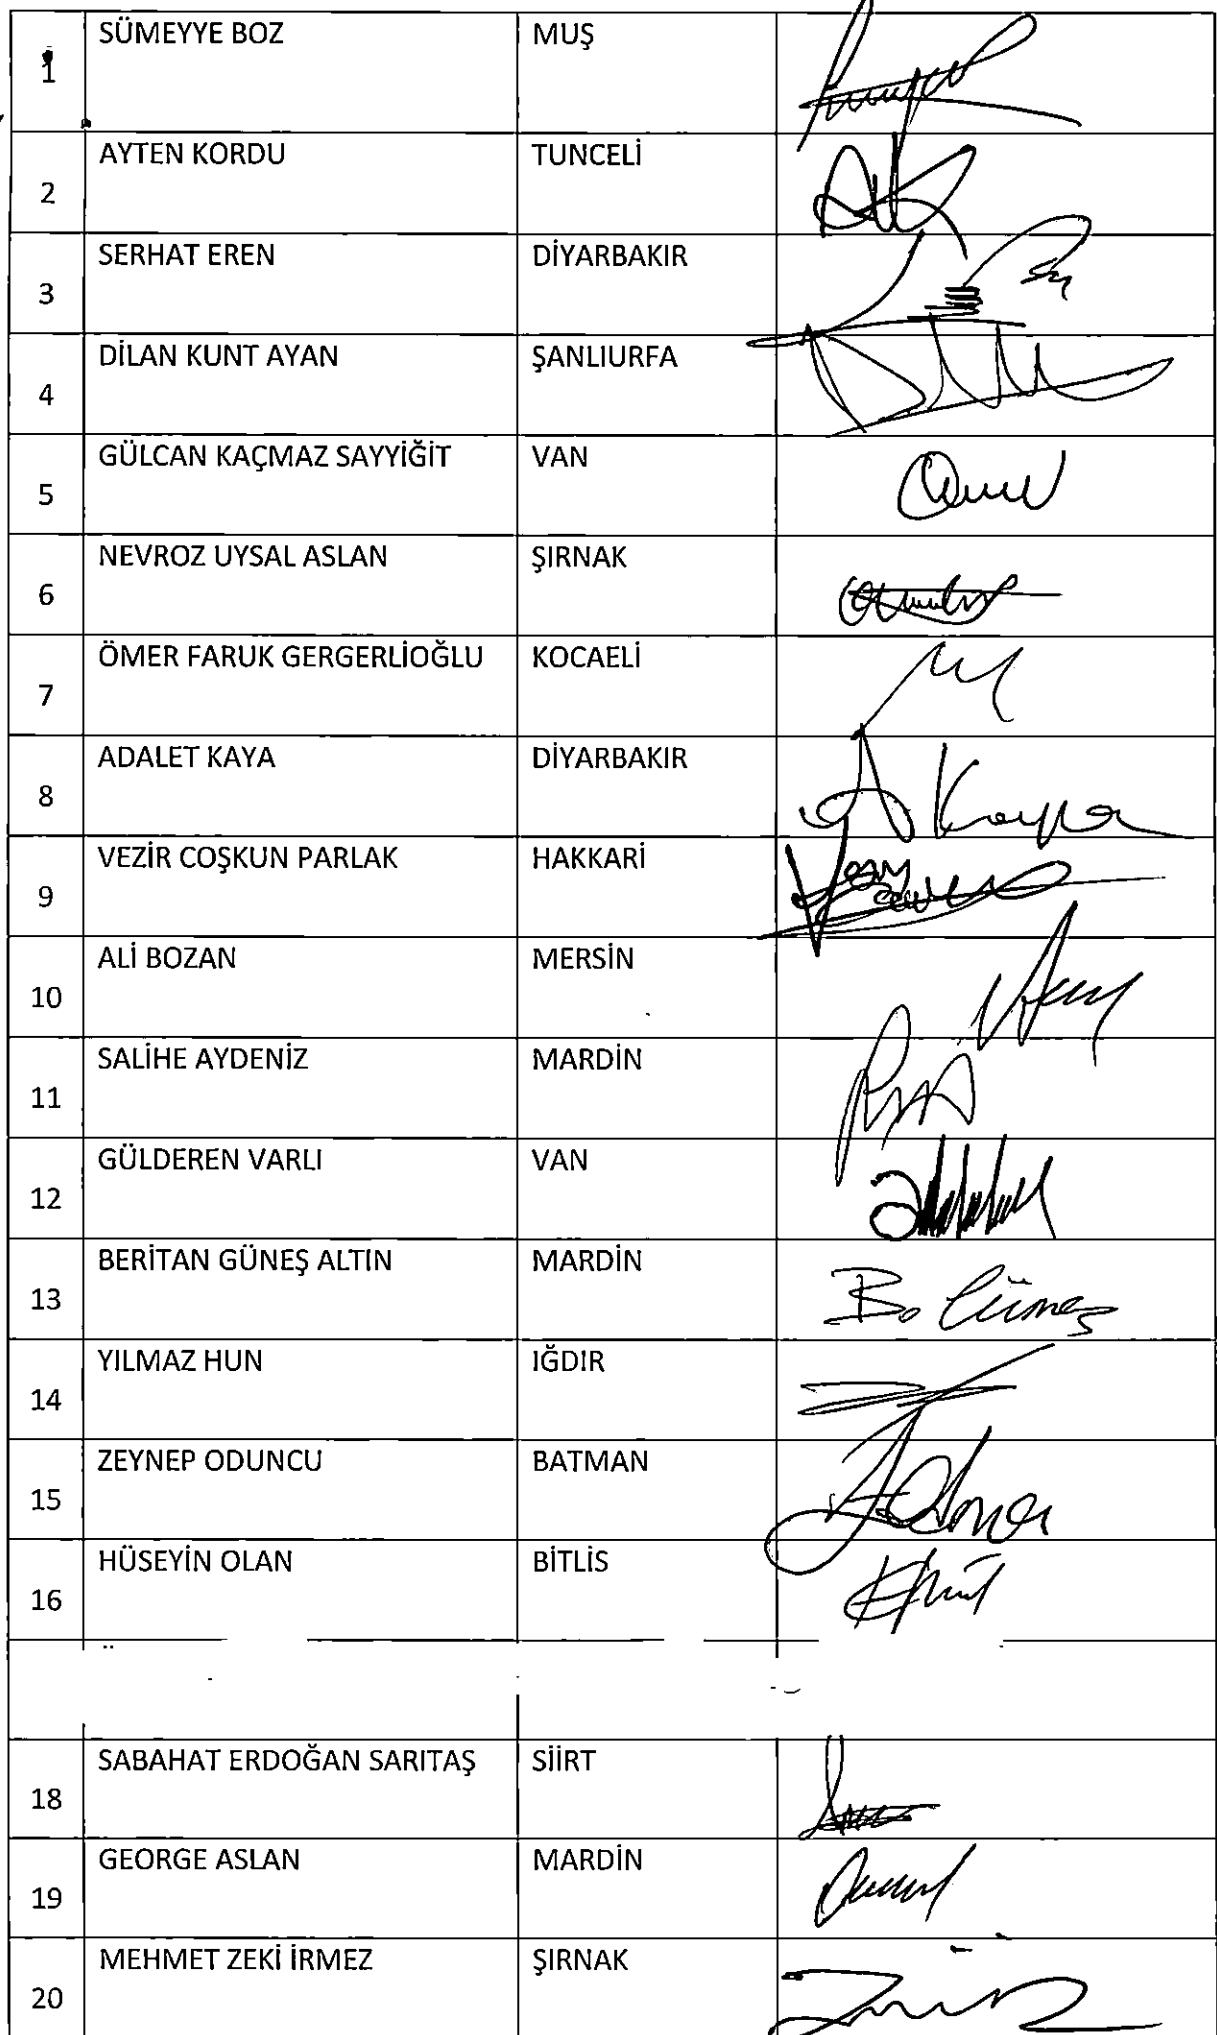 1 SÜMEYYE BOZ MUŞ
2 AYTEN KORDU TUNCELİ
3 SERHAT EREN DİYARBAKIR
4 DİLAN KUNT AYAN ŞANLIURFA
5 GÜLCAN KAÇMAZ SAYYİĞİT VAN
6 NEVROZ UYSAL ASLAN ŞIRNAK
7 ÖMER FARUK GERGERLİOĞLU KOCAELİ
8 ADALET KAYA DİYARBAKIR A Kaya
9 VEZİR COŞKUN PARLAK HAKKARİ
10 ALİ BOZAN MERSİN
11 SALİHE AYDENİZ MARDİN
12 GÜLDEREN VARLI VAN
13 BERİTAN GÜNEŞ ALTIN MARDİN B. Güneş
14 YILMAZ HUN IĞDIR
15 ZEYNEP ODUNCU BATMAN
16 HÜSEYİN OLAN BİTLİS
18 SABAHAT ERDOĞAN SARITAŞ SİİRT
19 GEORGE ASLAN MARDİN
20 MEHMET ZEKİ İRMEZ ŞIRNAK